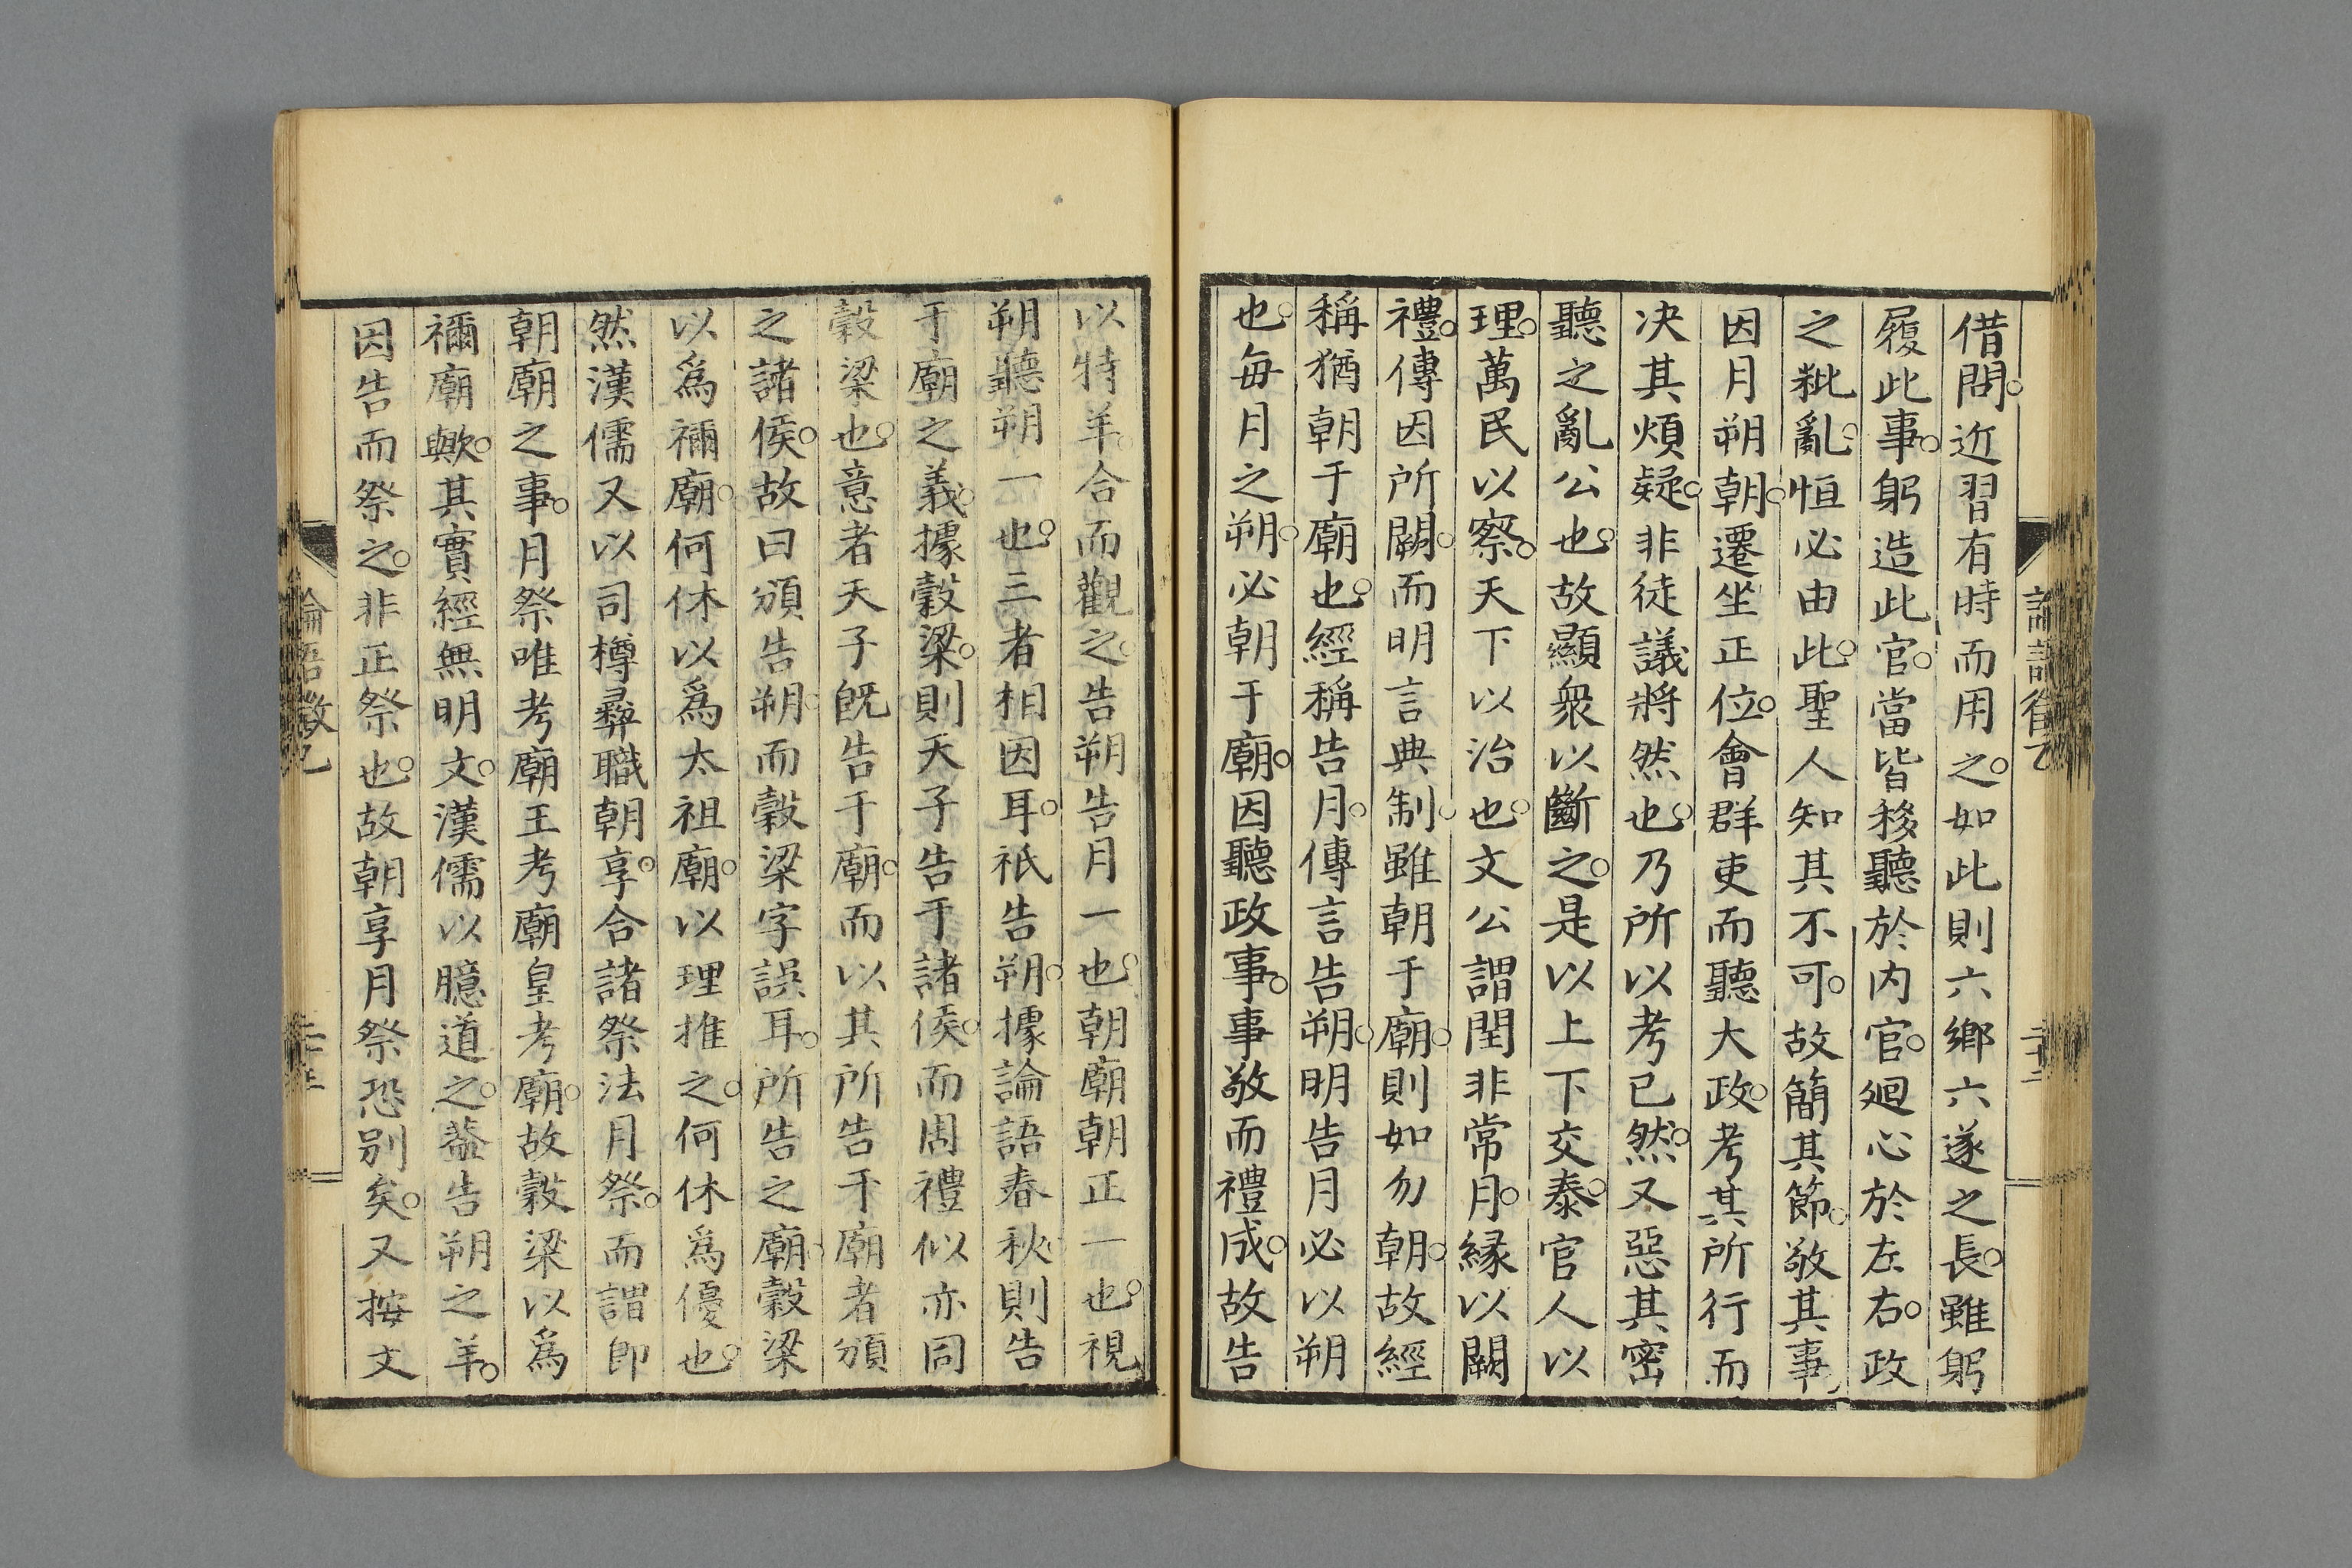 借問。近習有時而用之。如此則六鄉六遂之長。雖躬
履此事。躬造此官。當皆移聽於内官。廻心於左右。政
之粃亂。恒必由此。聖人知其不可。故簡其節。敬其事。
因月朔朝。遷坐正位。會群吏而聽大政。考其所行而
决其煩疑。非徒議將然也。乃所以考已然。又惡其密
聽之亂公也。故顯衆以斷之。是以上下交泰。官人以
理。萬民以察。天下以治也。文公謂閏非常月。緣以闕
禮。傳因所闕。而明言典制。雖朝于廟。則如勿朝。故經
稱猶朝于廟也。經稱告月。傳言告朔。明告月必以朔
也。每月之朔。必朝于廟。因聽政事。事敬而禮成。故告
以特羊。合而觀之。告朔告月一也。朝廟朝正一也。視
朔聽朔一也。三者相因耳。祇告朔。據論語春秋則告
于廟之義。據穀梁。則天子告于諸侯。而周禮似亦同
穀梁也。意者天子旣告于廟。而以其所告于廟者頒
之諸侯。故曰頒告朔。而穀梁字誤耳。所告之廟。穀梁
以爲禰廟。何休以爲太祖廟。以理推之。何休爲優也。
然漢儒又以司樽彝職朝享。合諸祭法月祭。而謂即
朝廟之事。月祭唯考廟王考廟皇考廟。故穀梁以爲
禰廟歟。其實經無明文。漢儒以臆道之。葢告朔之羊。
因告而祭之。非正祭也。故朝享月祭恐別矣。又按文
論語徵乙